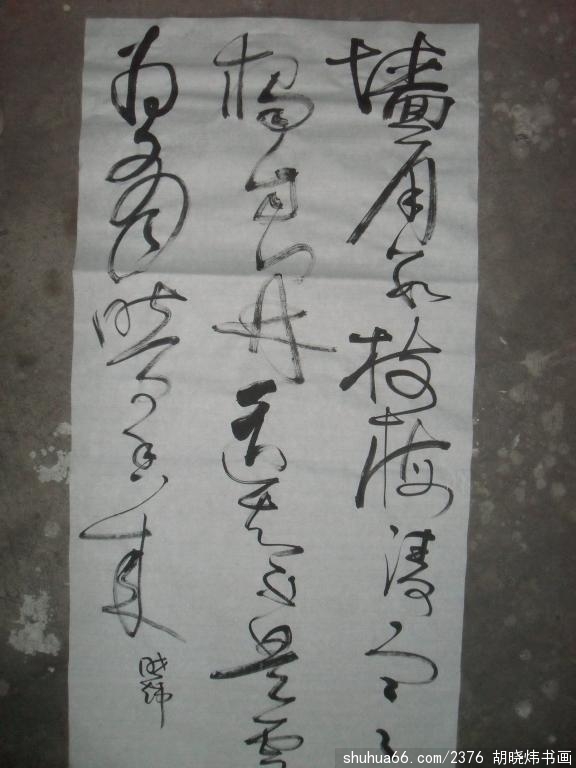 墙角数枝梅凌寒
独自开遥知不是雪
为有暗香来
晓炜
shuhua66.com/2376 胡晓炜书画